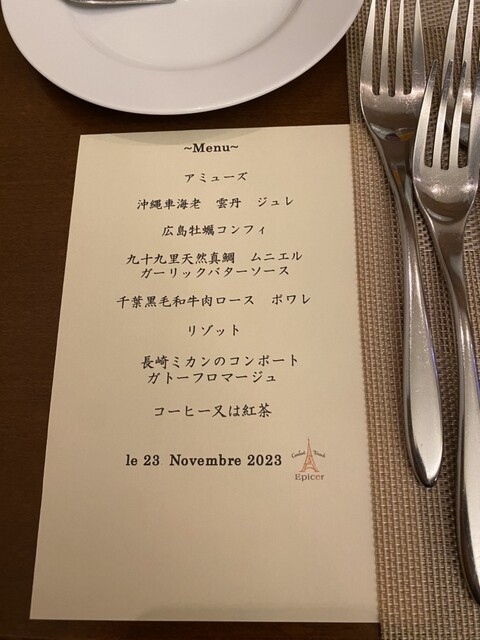 ~Menu~
アミューズ
沖縄車海老　雲丹　ジュレ
広島牡蠣コンフィ
九十九里天然真鯛　ムニエル
ガーリックバターソース
千葉黒毛和牛肉ロース　ポワレ
リゾット
長崎ミカンのコンポート
ガトーフロマージュ
コーヒー又は紅茶
le 23 Novembre 2023
Epicer